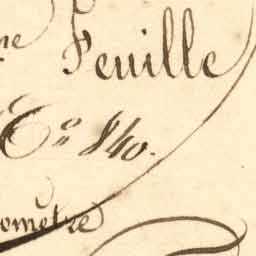 ne Feuille
Co. 840.
omètre